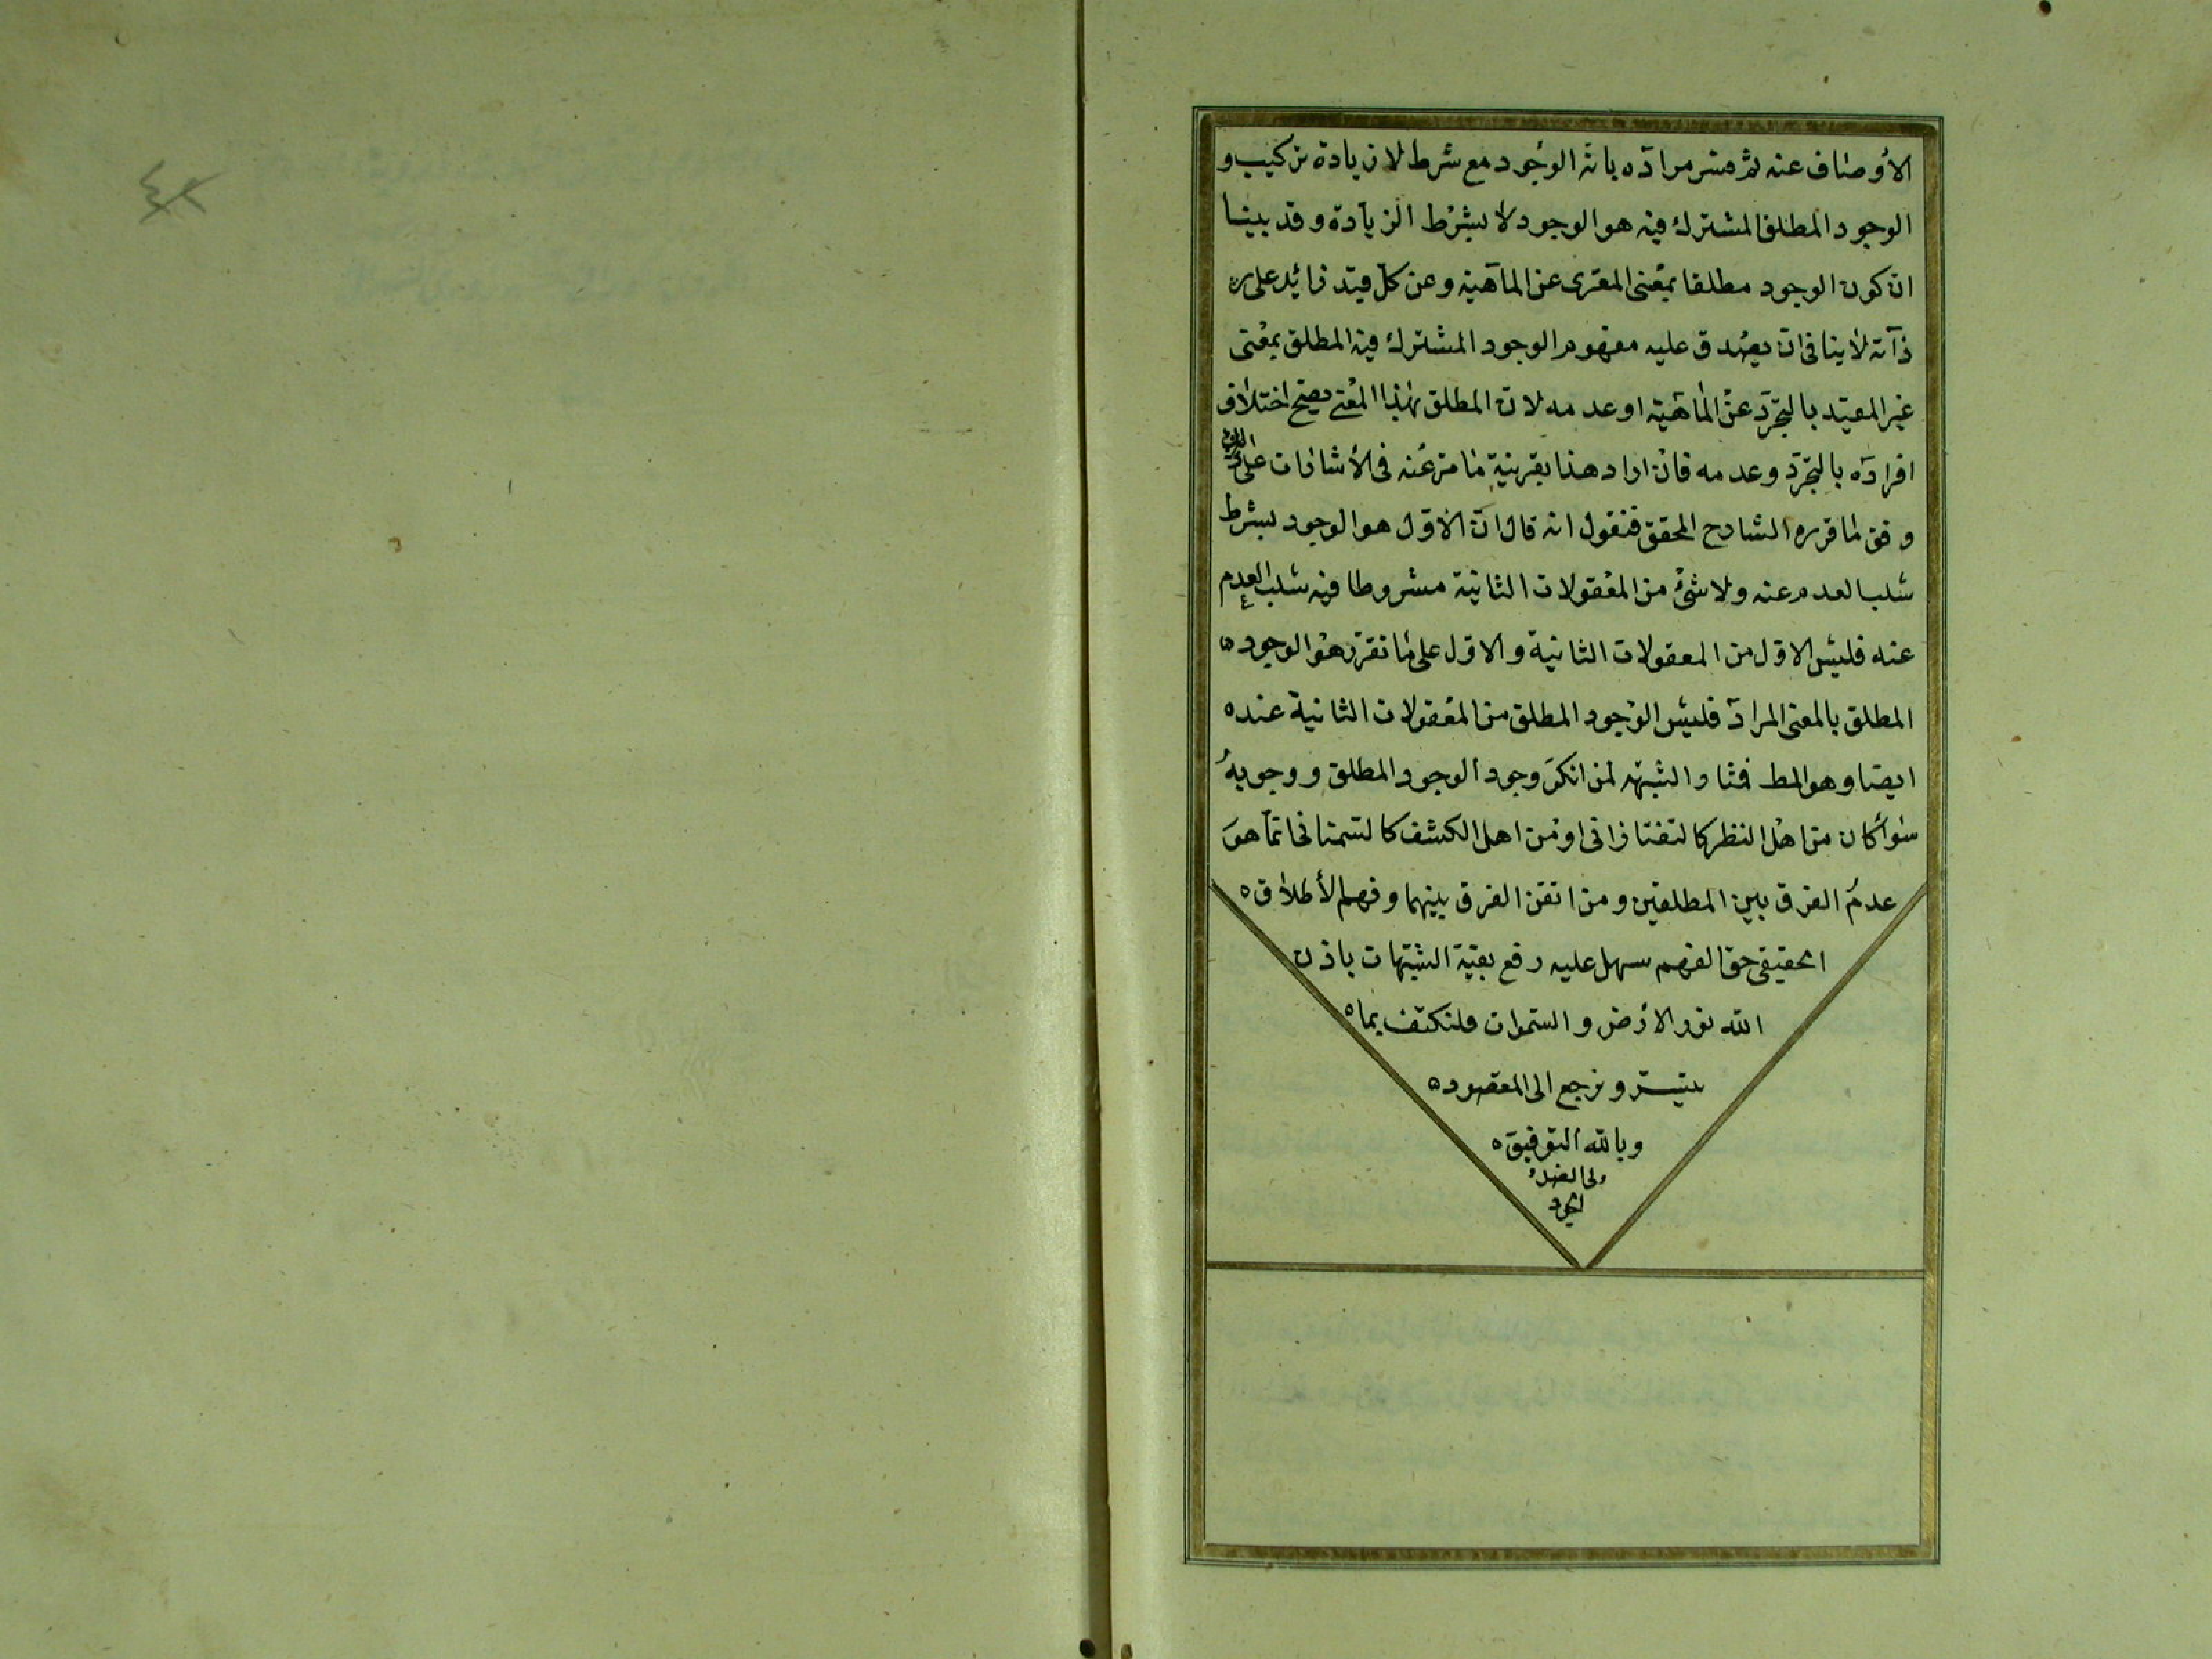 الأوصاف عنه ثم فسر مراده بانه الوجود مع شرط لا زيادة تركيب و
الوجود المطلق المشترك فيه هو الوجود لا بشرط الزيادة وقد بينا
ان كون الوجود مطلقا بمعنى المعرى عن الماهية وعن كل قيد زائد على
ذاته لا ينافى ان يصدق عليه مفهوم الوجود المشترك فيه المطلق بمعنى
غير المقيد بالتجرد عن الماهية او عدمه لان المطلق بهذا المعنى يصح اختلاف
افراده بالتجرد وعدمه فان اراد هذا بقرينة ما مر عنه فى الأشارات على
وفق ما قرره الشارح المحقق فنقول انه قال ان الاول هو الوجود بشرط
سلب العدم عنه ولا شئ من المعقولات الثانية مشروطا فيه سلب العدم
عنه فليس الاول من المعقولات الثانية والاول على ما تقرر هو الوجود
المطلق بالمعنى المراد فليس الوجود المطلق من المعقولات الثانية عنده
ايضا وهو المط فثار الشبهه لمن انكر وجود الوجود المطلق ووجوبه
سواء كان من اهل النظر كالتفتازانى او من اهل الكشف كالسمنانى انما هو
عدم الفرق بين المطلقين ومن اتقن الفرق بينهما وفهم الأطلاق
الحقيقى حق الفهم سهل عليه رفع بقية الشبهات باذن
الله نور الارض والسموات فلنكتف بما
تيسر ونرجع الى المقصود
وبالله التوفيق
ولى الفضل
الجود
٤٢